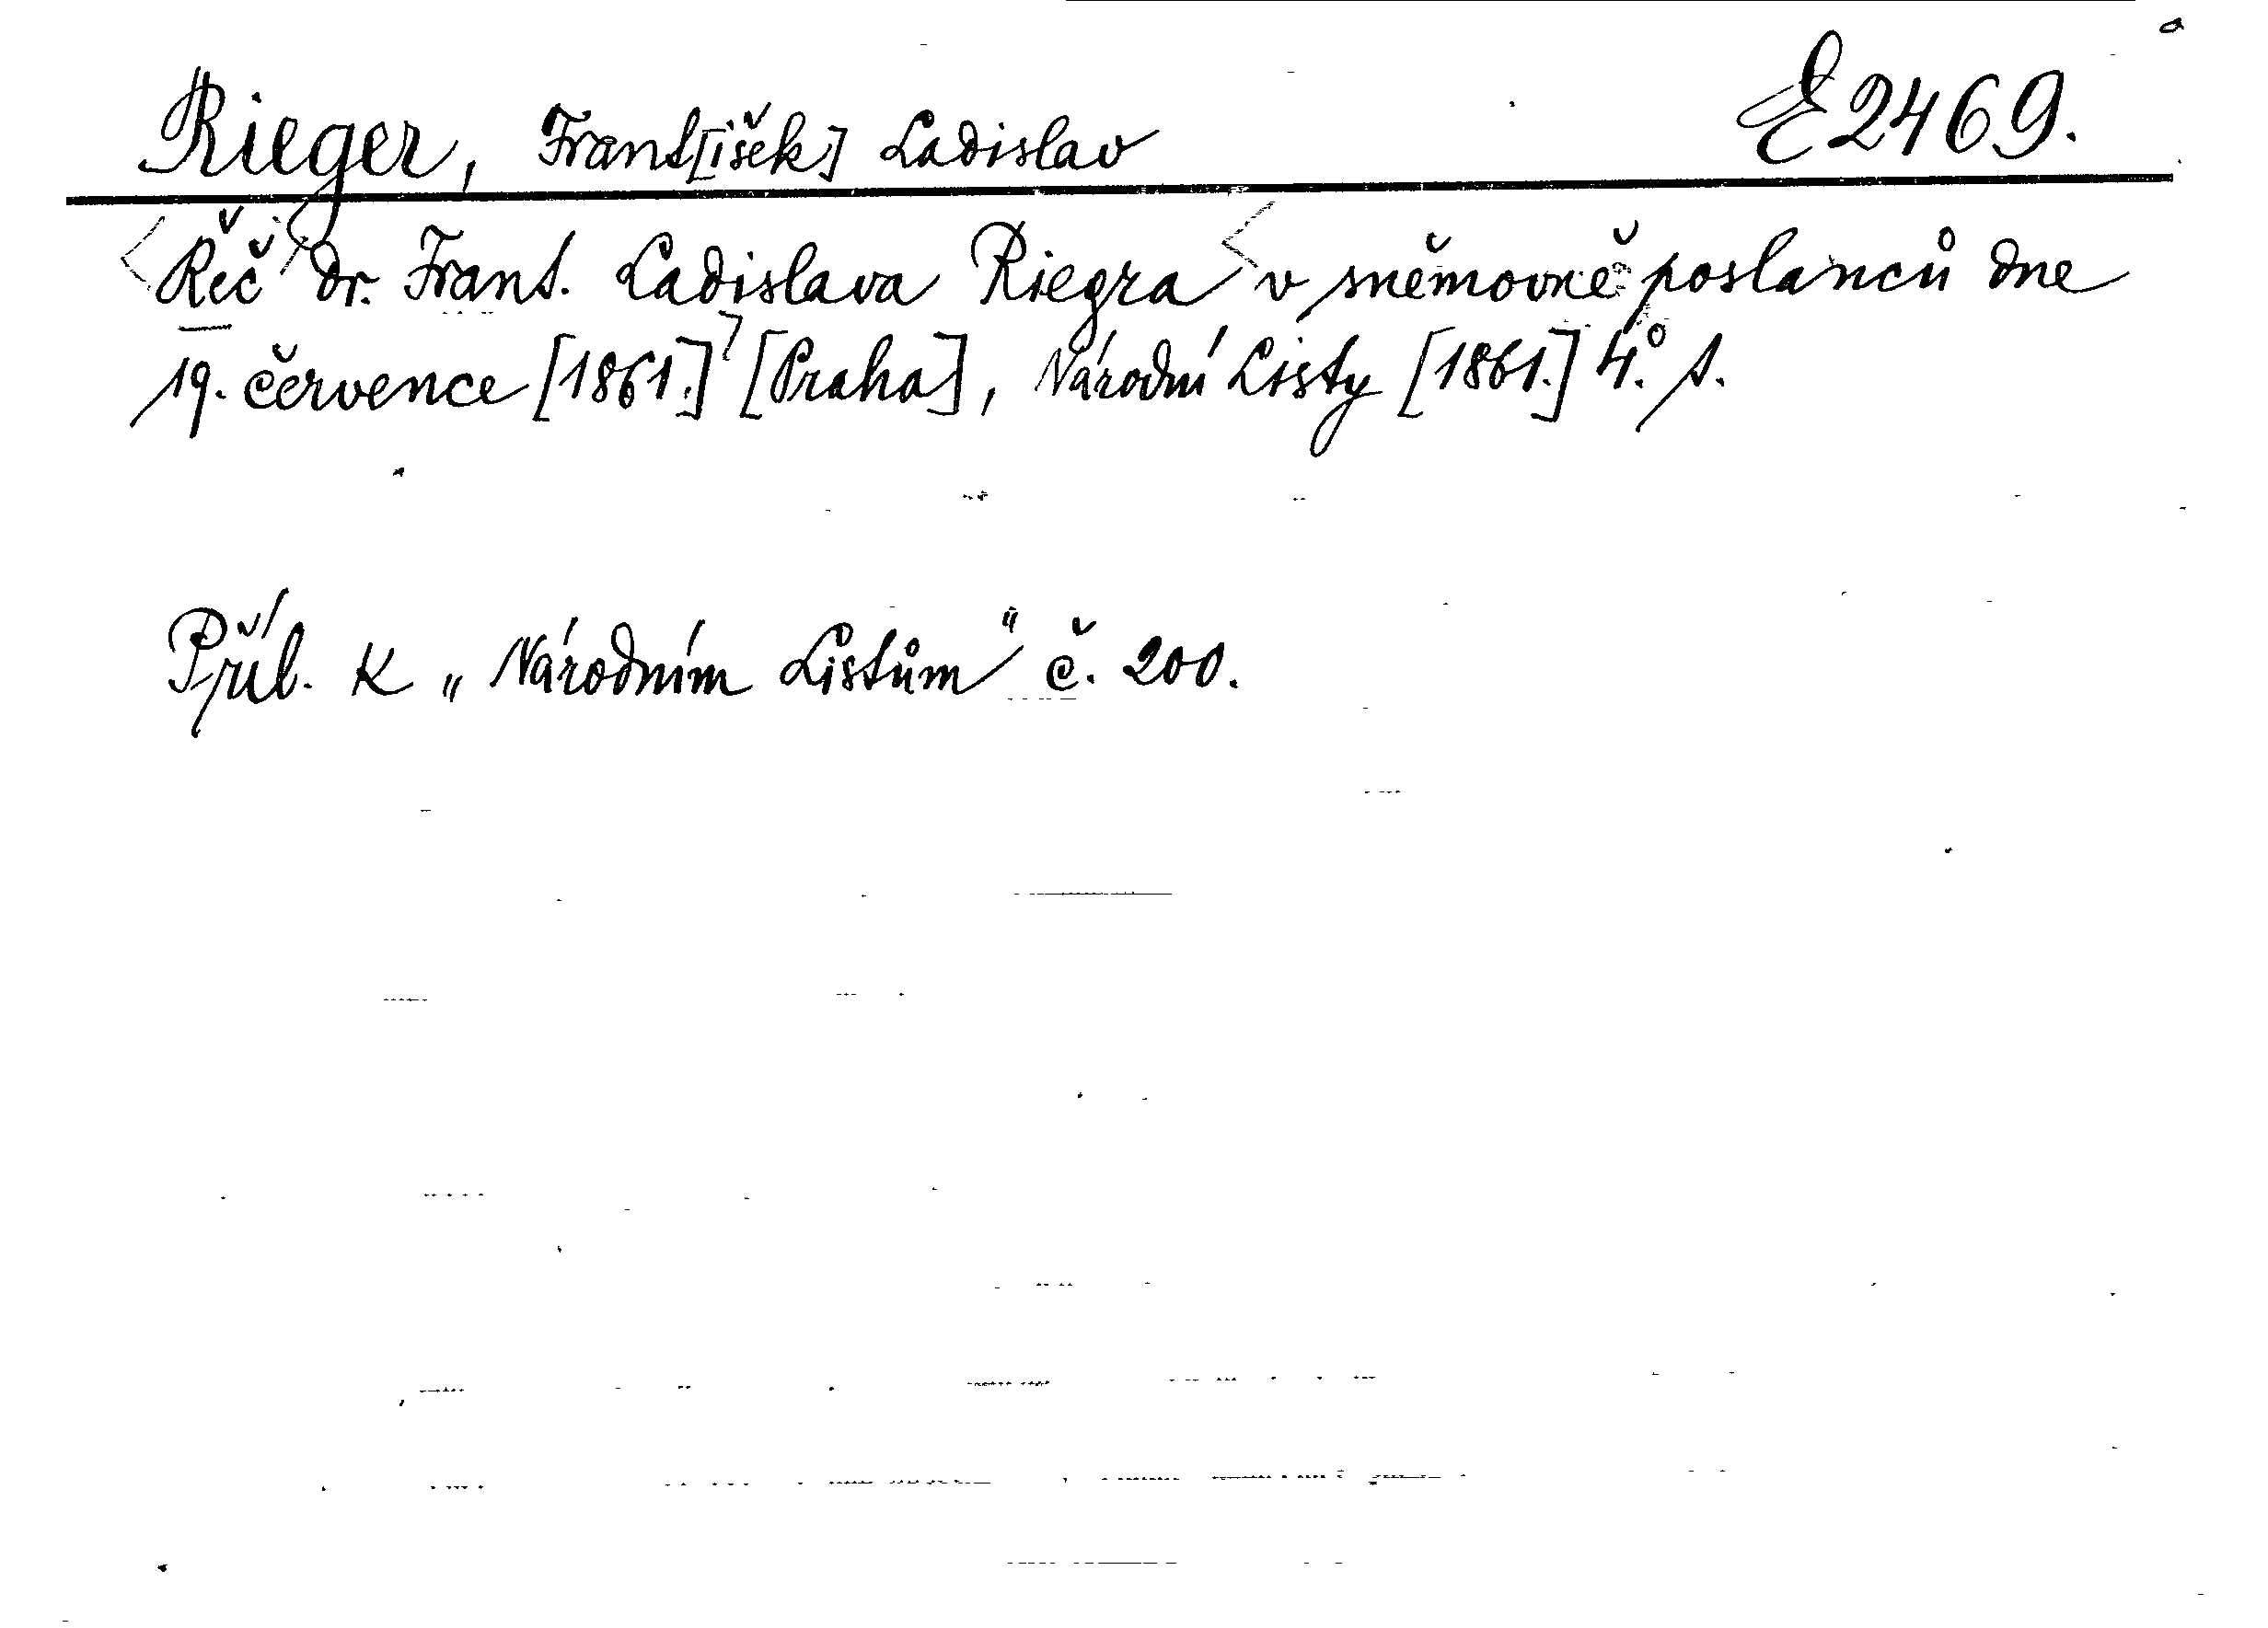 Rieger, Frant[išek] Ladislav E 2469.
Řeč dr. Frant. Ladislava Riegra v sněmovně poslanců dne
19. července [1861.] [Praha], Národní Listy [1861.] 4.° s.
Příl. k „Národním Listům" č. 200.